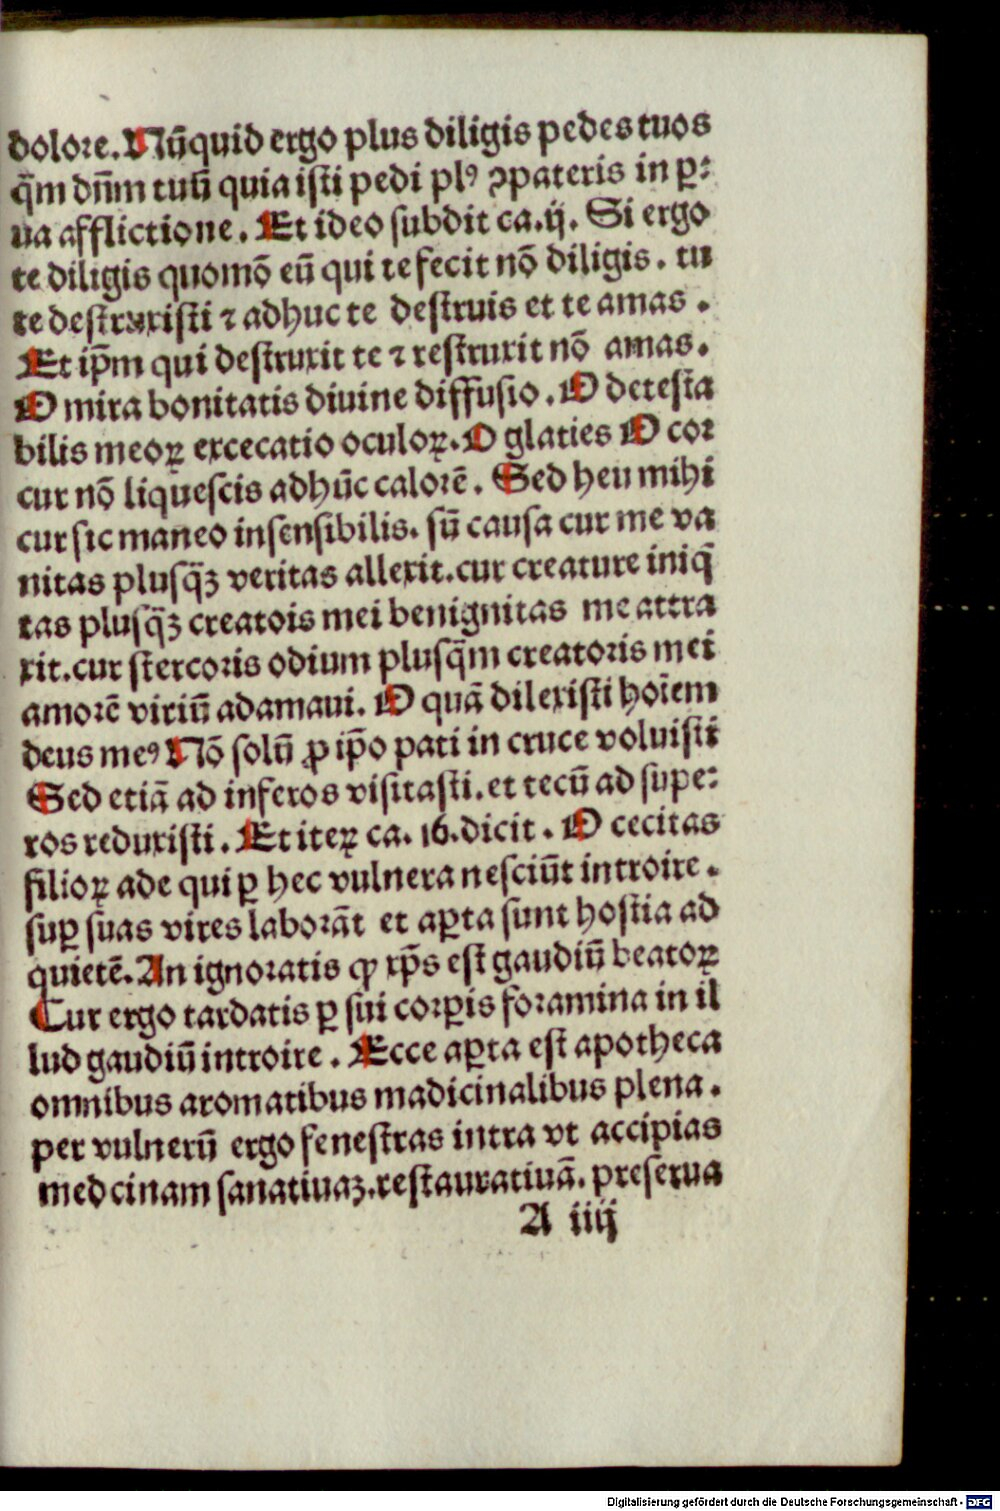 dolore. Nūquid ergo plus diligis pedes tuos
q̄m dn̄m tuū quia isti pedi plꝰ ꝯpateris in p̱:
ua afflictione. Et ideo subdit ca.ij. Si ergo
te diligis quomō eū qui te fecit nō diligis. tu
te destruxisti ⁊ adhuc te destruis et te amas.
Et ip̄m qui destruxit te ⁊ restruxit nō amas.
O mira bonitatis diuine diffusio. O detesta
bilis meoꝝ excecatio oculoꝝ. O glaties O cor
cur nō liquescis adhūc calorē. Sed heu mihi
cur sic maneo insensibilis. sū causa cur me va
nitas plusq̄ꝫ veritas allexit. cur creature iniq̄
tas plusq̄ꝫ creatois mei benignitas me attra
xit. cur stercoris odium plusq̄m creatoris mei
amorē viriū adamaui. O quā dilexisti hoīem
deus meꝰ Nō solū ꝓ ip̄o pati in cruce voluisti
Sed etiā ad inferos visitasti. et tecū ad supe:
ros reduxisti. Et iteꝝ ca. 16. dicit. O cecitas
filioꝝ ade qui ꝑ hec vulnera nesciūt introire.
suꝑ suas vires laborāt et aꝑta sunt hostia ad
quietē. An ignoratis ꝙ xp̄s est gaudiū beatoꝝ
Cur ergo tardatis ꝑ sui corꝑis foramina in il
lud gaudiū introire. Ecce aꝑta est apotheca
omnibus aromatibus madicinalibus plena.
per vulnerū ergo fenestras intra vt accipias
medcinam sanatiuaꝫ. restauratiuā. preserua
A iiij
Digitalisierung gefördert durch die Deutsche Forschungsgemeinschaft - DFG